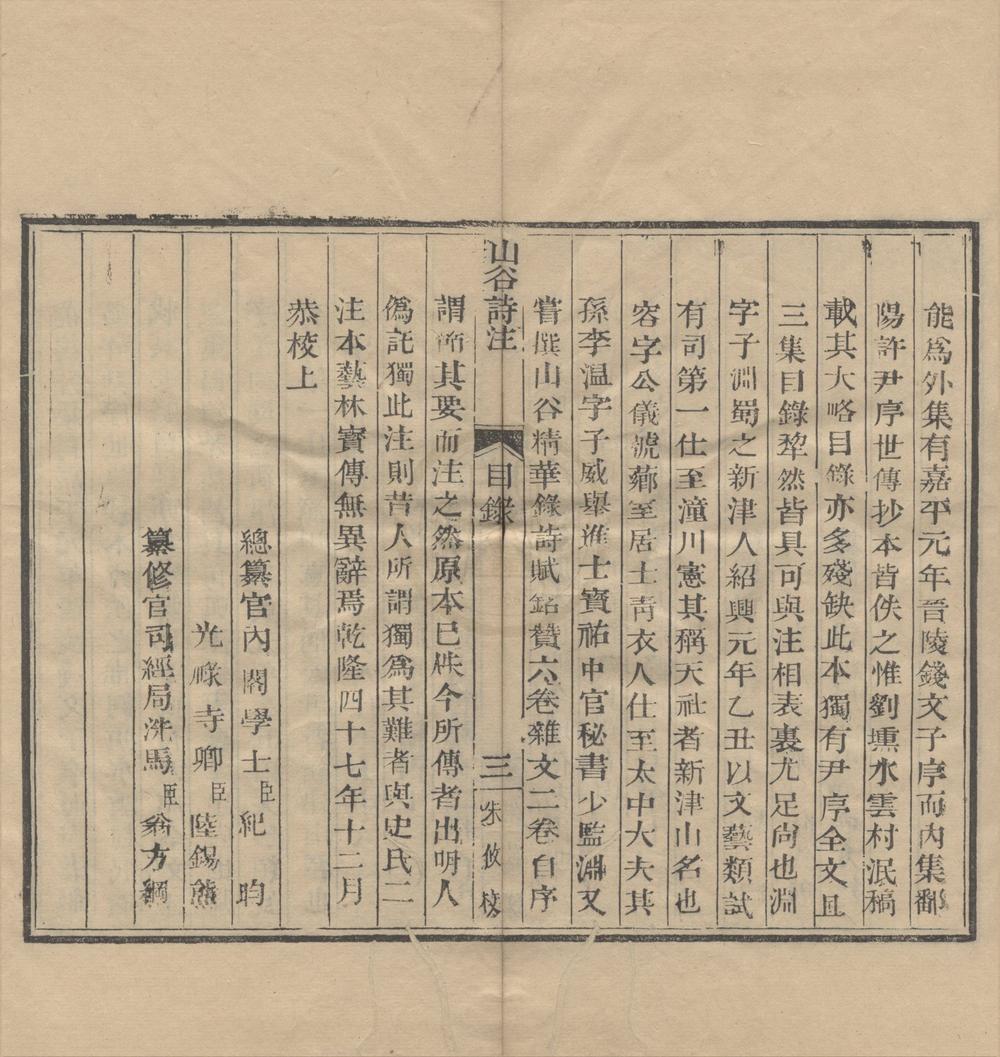 能爲外集有嘉平元年晉陵錢文子序而内集鄱
陽許尹序世傳抄本皆佚之惟劉壎水雲村泯稿
載其大略目錄亦多殘缺此本獨有尹序全文且
三集目錄犂然皆具可與注相表裏尤足尚也淵
字子淵蜀之新津人紹興元年乙丑以文藝類試
有司第一仕至潼川憲其稱天社者新津山名也
容字公儀號薌至居士靑衣人仕至太中大夫其
孫李温字子威舉進士寶祐中官秘書少監淵又
嘗撰山谷精華錄詩賦銘贊六卷雜文二卷自序
山谷詩注 目錄 三 朱攸校
謂節其要而注之然原本已佚今所傳者出明人
僞託獨此注則昔人所謂獨爲其難者與史氏二
注本藝林寶傳無異辭焉乾隆四十七年十二月
恭校上
總纂官内閣學士臣紀昀
光祿寺卿臣陸錫熊
纂修官司經局洗馬臣翁方綱